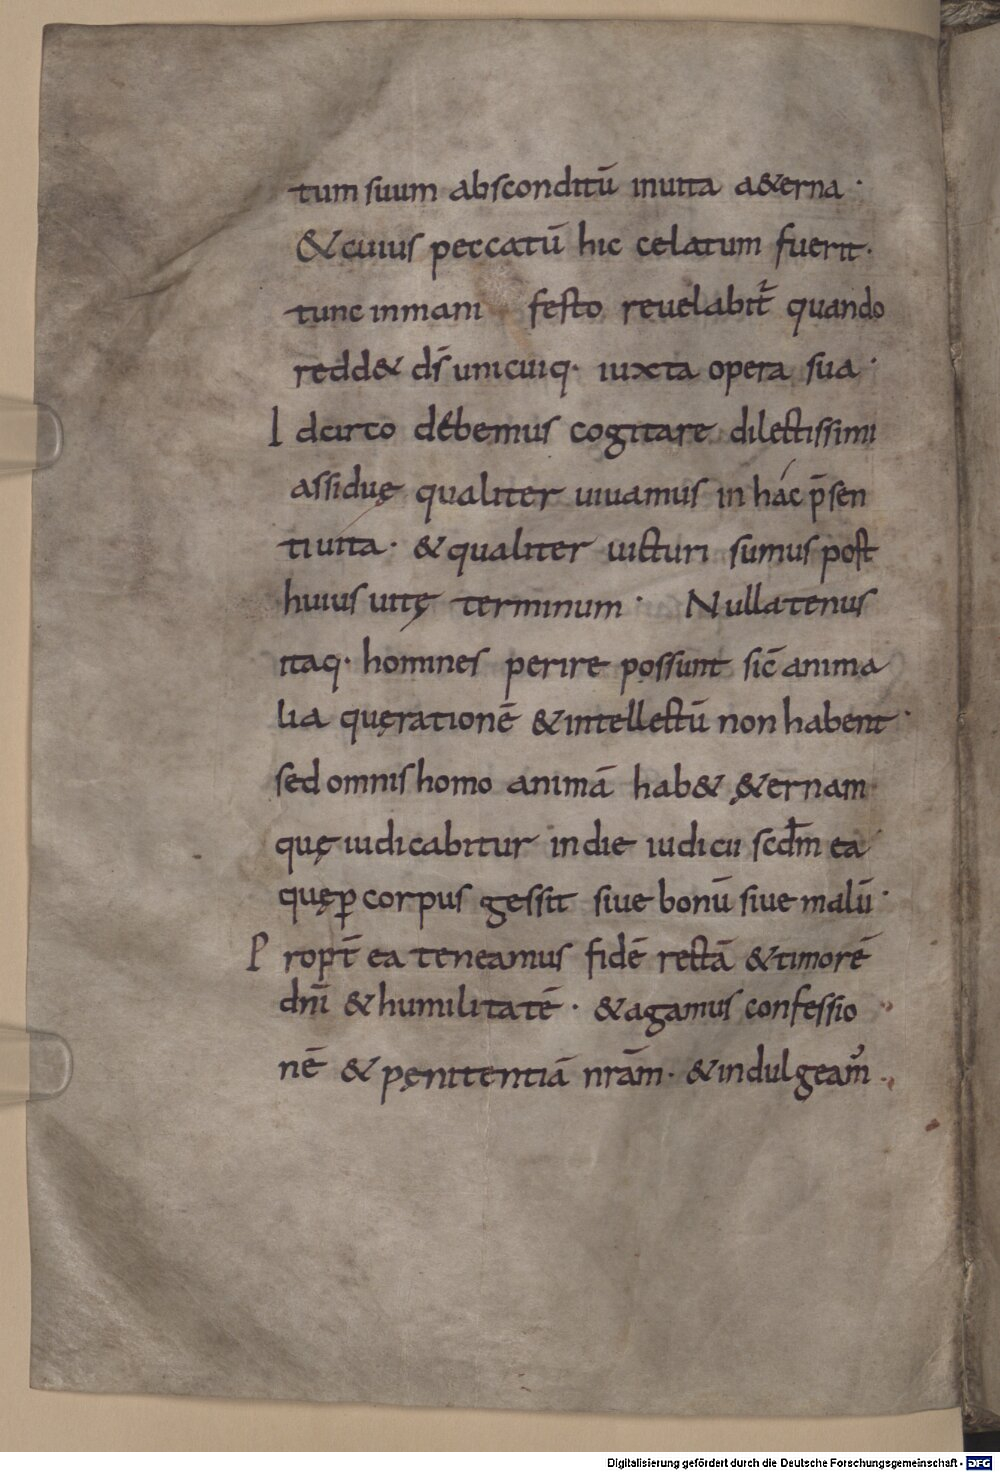 tum suum absconditū inuita a&erna ·
& cuius peccatū hic celatum fuerit ·
tunc inmani festo reuelabit̄ quando
redd& ds̄ unicuiq· iuxta opera sua ·
Idcirco debemus cogitare dilectissimi
assiduę qualiter uiuamus in hác p̄sen
ti uita · & qualiter uicturi sumus post
huius uitę terminum · Nullatenus
itaq· homines perire possunt sic̄ anima
lia quę rationē & intellectū non habent ·
sed omnis homo animā hab& ę&ernam
quę iudicabitur in die iudicii scdm̄ ea
quę ꝑ corpus gessit siue bonū siue malū ·
Propt̄ ea teneamus fidē rectā & timorē
dnī & humilitatē · & agamus confessio
nē & pęnitentiā nrām · & indulgeam̄
Digitalisierung gefördert durch die Deutsche Forschungsgemeinschaft - DFG